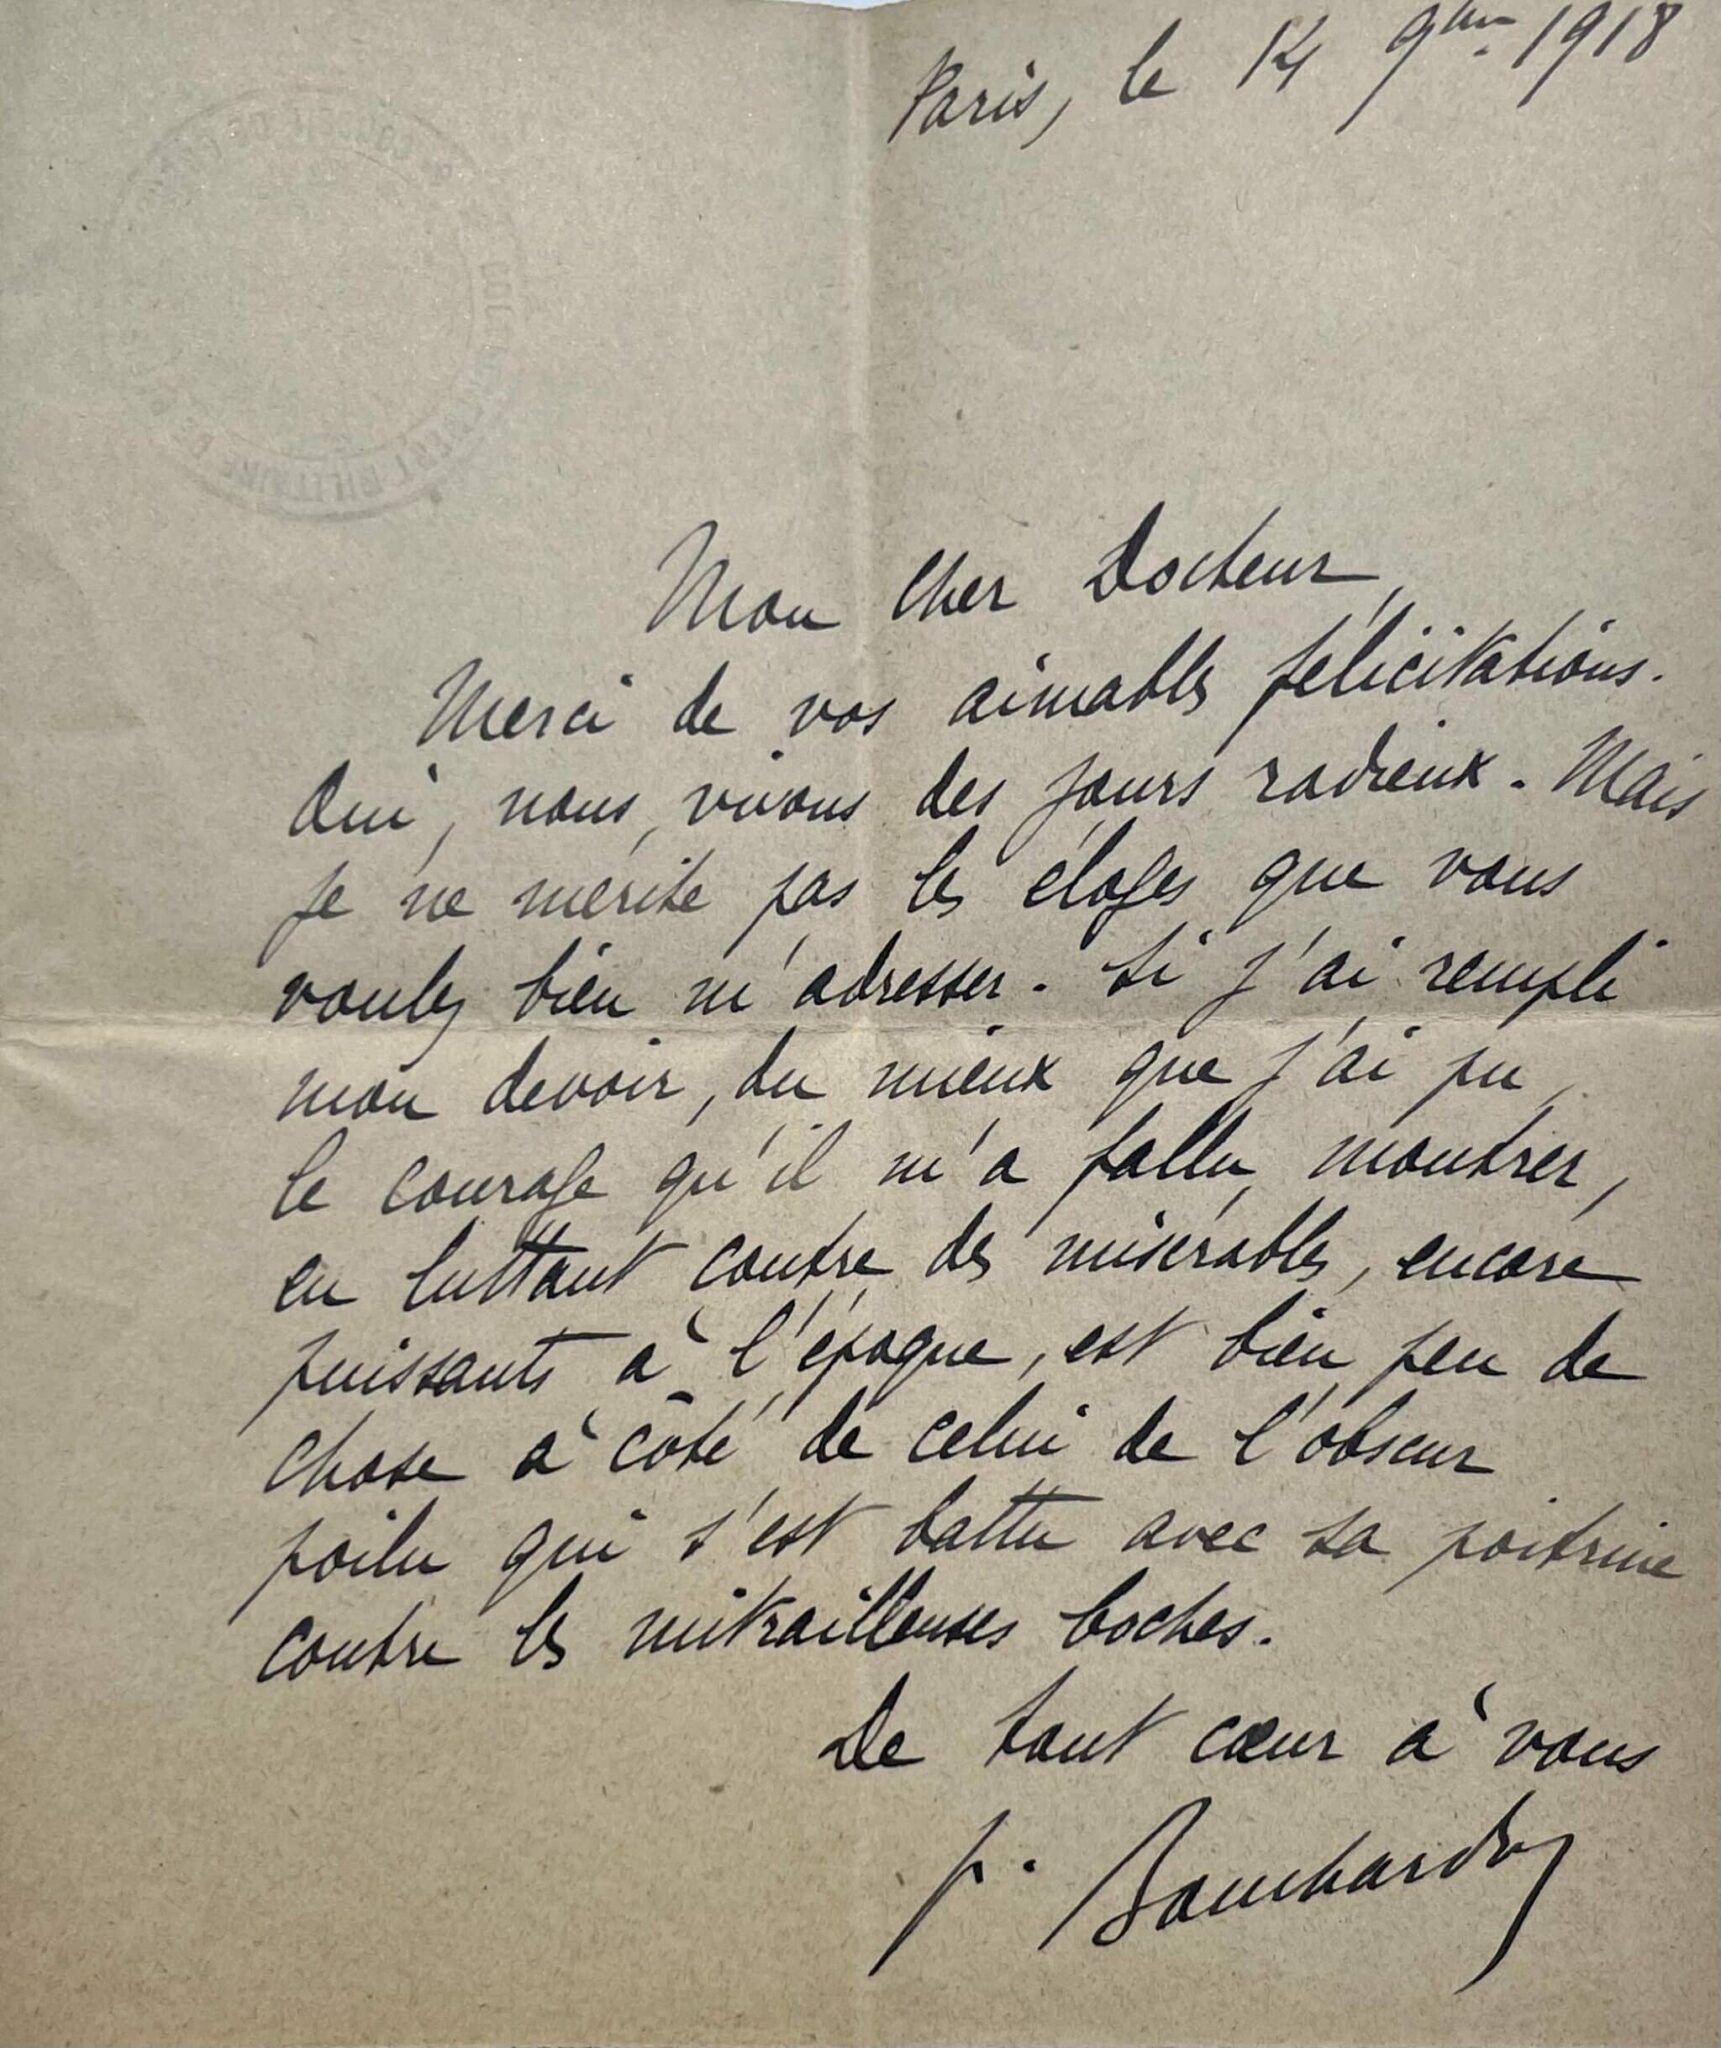 Paris, le 14 9bre 1918
Mon cher Docteur,
Merci de vos aimables félicitations.
Oui, nous vivons des jours radieux. Mais
je ne mérite pas les éloges que vous
voulez bien m'adresser. Si j'ai rempli
mon devoir, du mieux que j'ai pu,
le courage qu'il m'a fallu montrer,
en luttant contre des misérables, encore
puissants à l'époque, est bien peu de
chose à côté de celui de l'obscur
poilu qui s'est battu avec sa poitrine
contre les mitrailleuses boches.
De tout cœur à vous